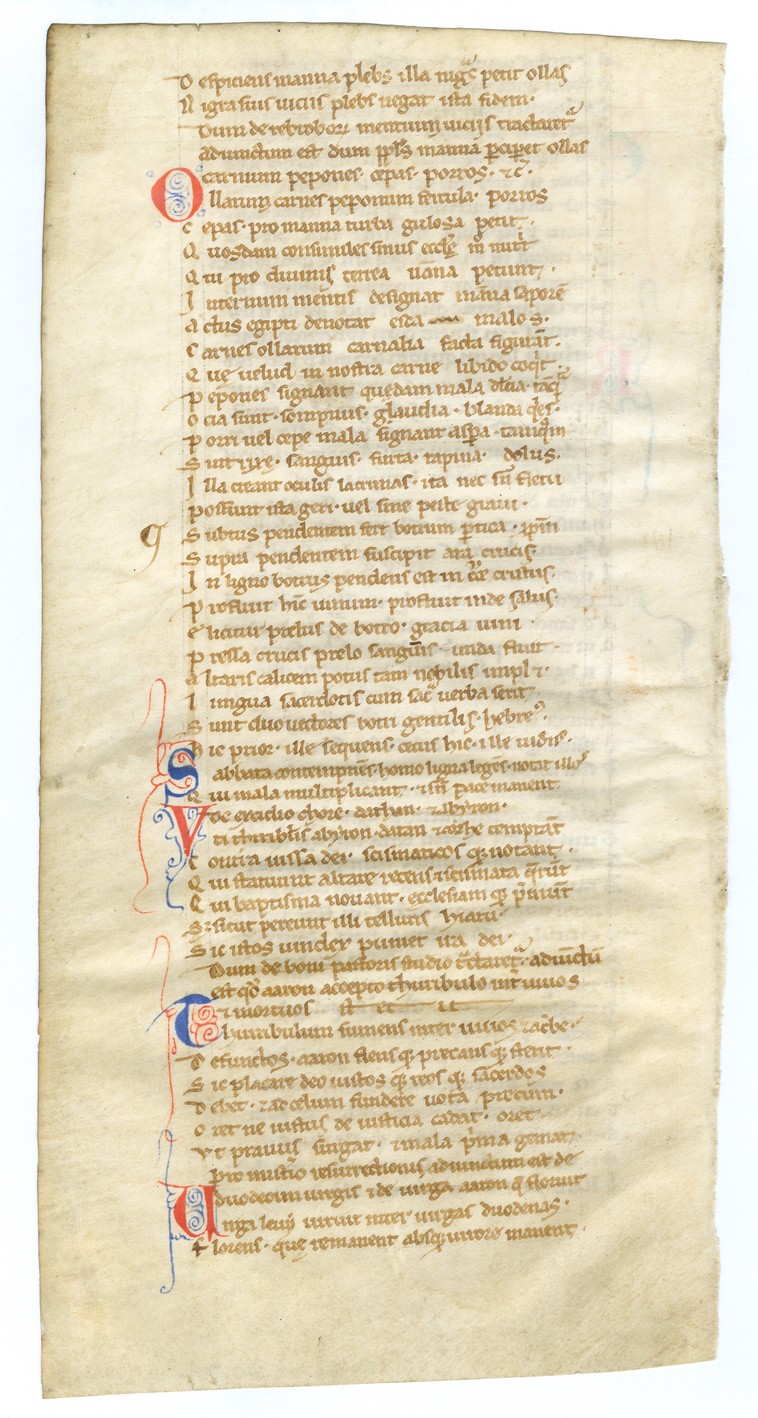 D espiciens manna plebs illa nigras petit ollas
N igra suis uiciis plebs negat ista fidem.
Dum de rebꝰ mentium uiciis tractaret
adiunctum est dum ppl's manna perciperet ollas
O carnium pepones. cepas. porros. ⁊c̄.
llarum carnes peponum fercula. porros
C epas. pro manna turba gulosa petit.
Q uosdam consimiles sinus eccl'e
Q ui pro diuinis terrea uana petunt.
I nternum mentis designat mana saporē
A ctus egipti denotat esca malos.
C arnes ollarum carnalia facta figurāt.
Q ue uelud in nostra carne libido coqͥt.
P epones signant quedam mala dulcia. tāqͣ
O cia sunt. sompnus. blanda qͥes.
P orri uel cepe mala signant aspa. tanqͣm
S unt rixe. sanguis. furta. rapina. dolus.
I lla creant oculis lacrimas. ita nec sn̄ fletu
possunt ista geri. uel sine peste graui.
S ubtus pendentem fert botrum ptica. xpm̄
S upra pendentem suscipit ara crucis.
I n ligno botrus pendens est in cͬce
P rofluit hīc uinum. profluit inde salus.
E licitur prelus de botro. gracia uini
P ressa crucis prelo sanguinis unda fluit.
A ltaris calicem potus tam nobilis implet.
L ingua sacerdotis cum sacͣ uerba serit.
S unt duo uectores botri gentilis. hebreꝰ.
H ic prior. ille sequens. cecus hic. ille uidens.
S abbata contempnens. homo ligna legens. notat illos
Q ui mala multiplicant. ⁊ sn̄ pace manent.
De excidio chore. dathan. ⁊ abyron.
V t thuribl'is abyron. datan ⁊ temptāt
C ontra iussa dei. scismaticos qꝫ notant.
Q ui statuunt altare recens ⁊ scismata q̄rūt
Q ui baptisma nouant. ecclesiam qꝫ pͥmūt
Sꝫ sicut pereunt illi telluris hiatu.
S ic istos uindex puniet ira dei.
Dum de boni pastoris studio tͣctaret. adiunctū
est qd' aaron accepto thuribulo int' uiuos
T ⁊ mortuos
huribulum sumens inter uiuos
D efunctos. aaron flens qꝫ precans qꝫ stetit.
S ic placare deo iustos qꝫ reos qꝫ sacerdos
D ebet. ⁊ ad celum fundere uota precum.
O ret ne iustus de iusticia cadat. oret
V t prauus surgat. ⁊ mala pͥma gemat.
Pro misterio resurrectionis adiunctum est de
duodecim uirgis ⁊ de uirga aaron q̄ floruit
V irga leui uiruit inter uirgas duodenas.
F lorens. que remanent absqꝫ uirore manent.